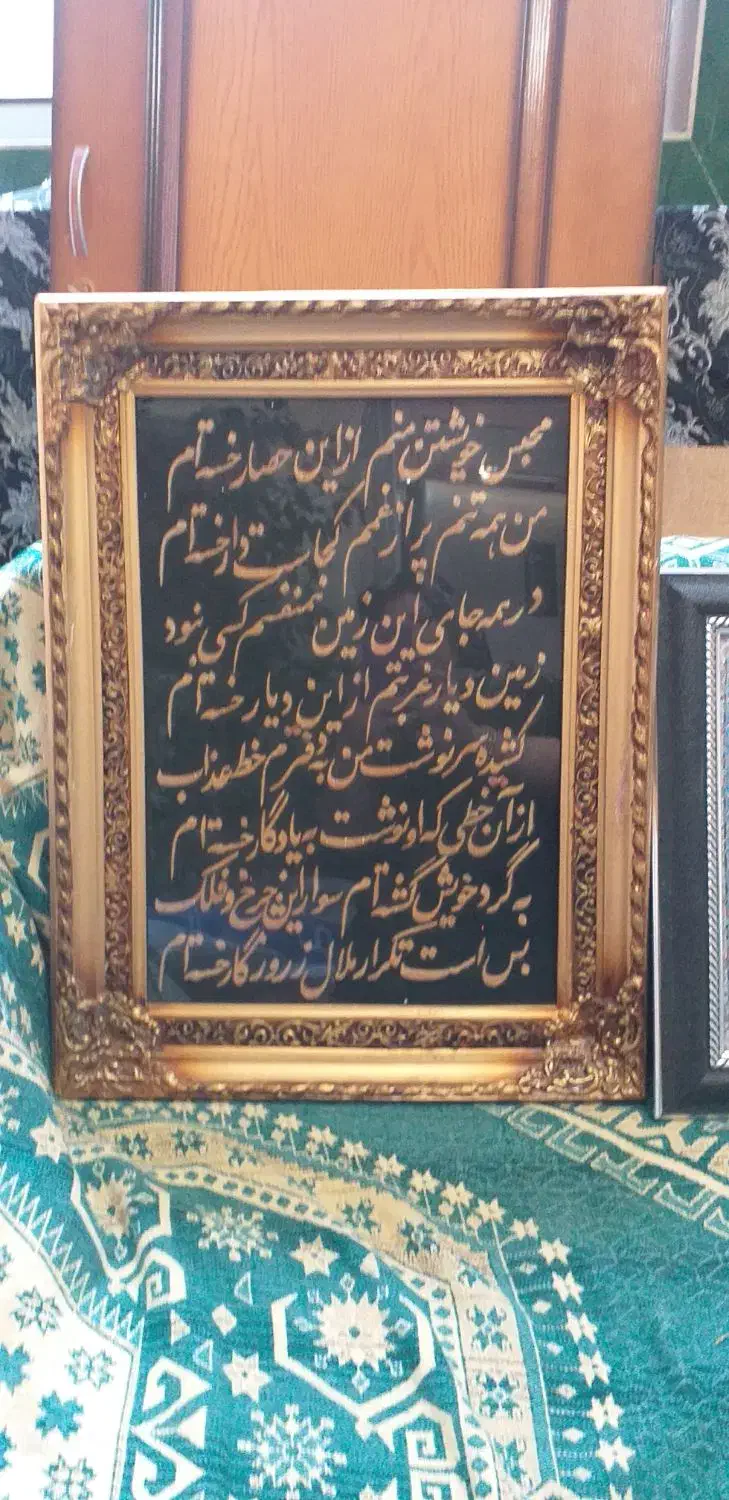 محبس خویشتن منم از این حصار خسته ام
من همه تن پر از غمم کجاست دار خسته ام
در همه جای این زمین همنفسم کسی نبود
زمین دیار غربتم از این دیار خسته ام
کشیده سرنوشت من به دفترم خط عذاب
از آن خطی که او نوشت به یادگار خسته ام
به گرد خویش گشته ام سوار این چرخ و فلک
بس است تکرار ملال ز روزگار خسته ام